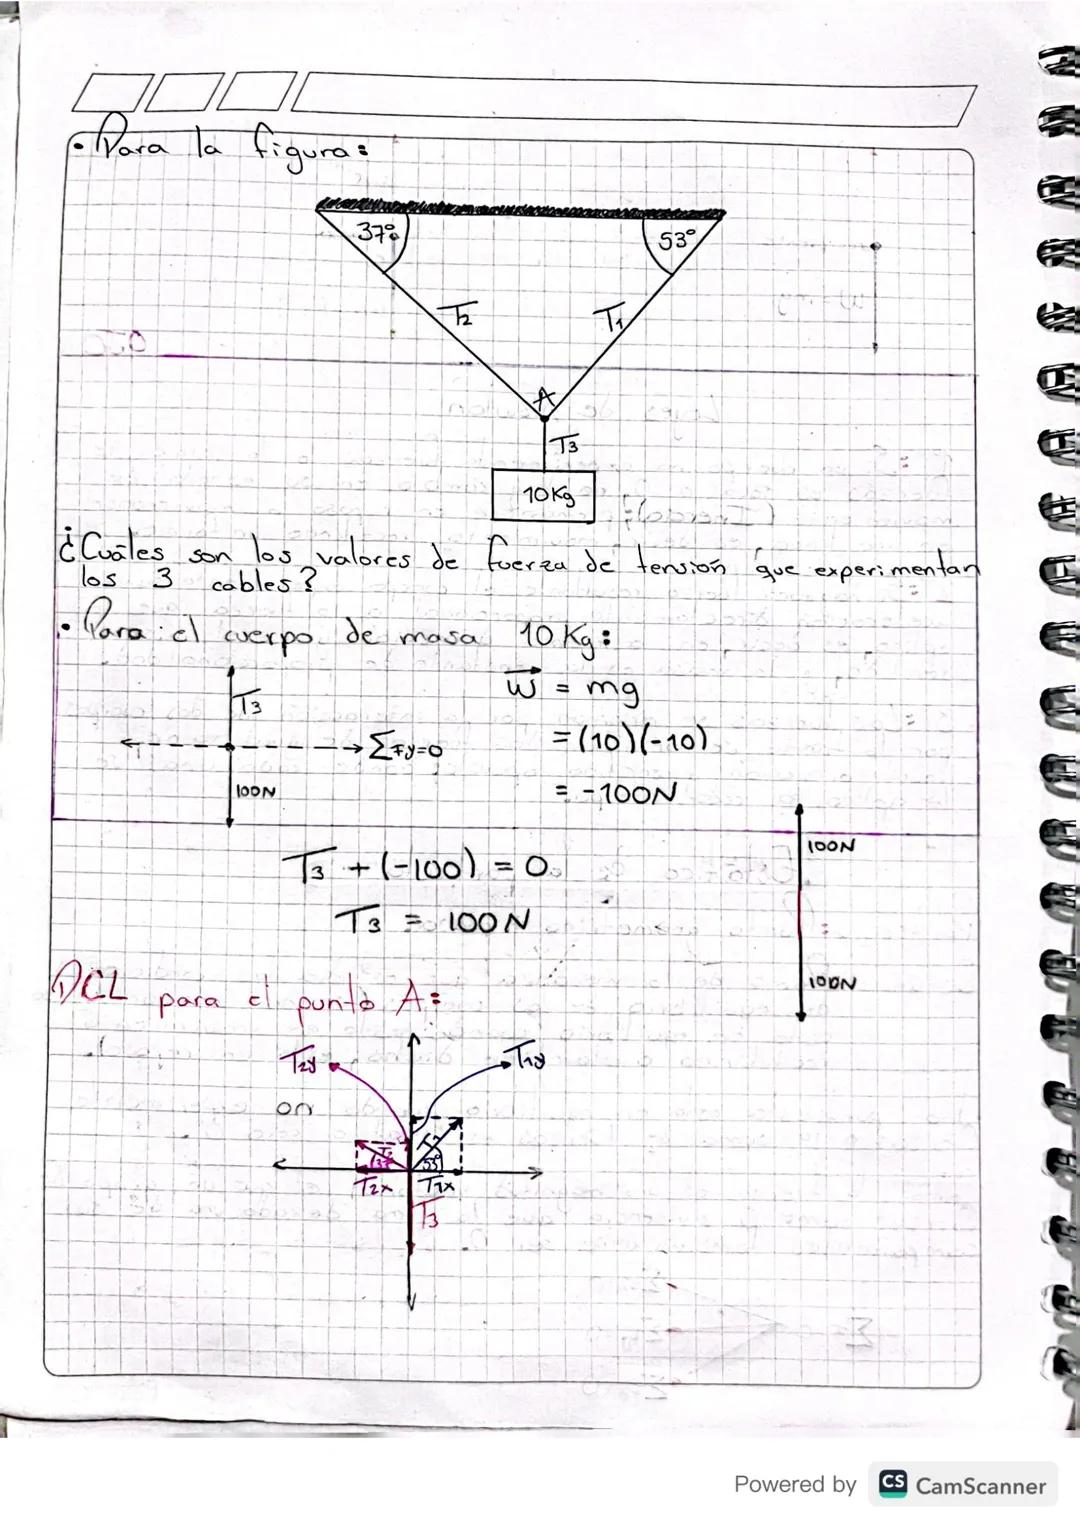 • Para la figura:
37° 53°
T2 T1
A
T3
10Kg
¿Cuáles son los valores de fuerza de tensión que experimentan
los 3 cables?
• Para el cuerpo de masa 10 Kg:
T3 W = mg
ΣFy=0 =(10)(-10)
100N = -100N
100N
T3 + (-100) = 0
T3 = 100N
100N
DCL para el punto A:
T2y T1y
53°
T2x T1x
T3
Powered by CS CamScanner